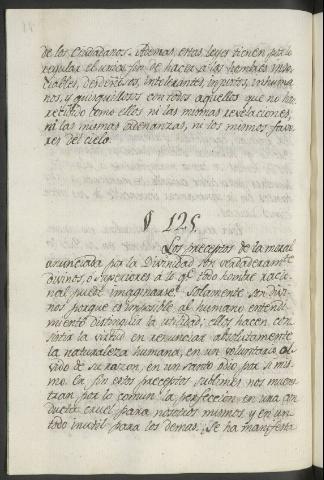 de los Ciudadanos. Ademas estas leyes tienen por lo
regular el unico fin de hacer a los hombres inso-
ciables, desdeñosos, intolerantes, injustos, inhuma-
nos, y quisquillosos con todos aquellos que no han
recibido como ellos ni las mismas revelaciones,
ni las mismas ordenanzas, ni los mismos favo-
res del cielo.
§ 125
Los preceptos de la moral
anunciada por la Divinidad son verdaderamte
divinos, o superiores a lo qe todo hombre racio-
nal puede imaginarse. Solamente son divi-
nos porque es imposible al humano entendi-
miento distinguir la utilidad; ellos hacen con-
sistir la virtud en renunciar absolutamente
la naturaleza humana, en un voluntario ol-
vido de su razon, en un santo odio por si mis-
mo. En fin estos preceptos sublimes nos mues-
tran por lo comun la perfeccion en una con-
ducta cruel para nosotros mismos, y en un
todo inutil para los demas. Se ha manifesta